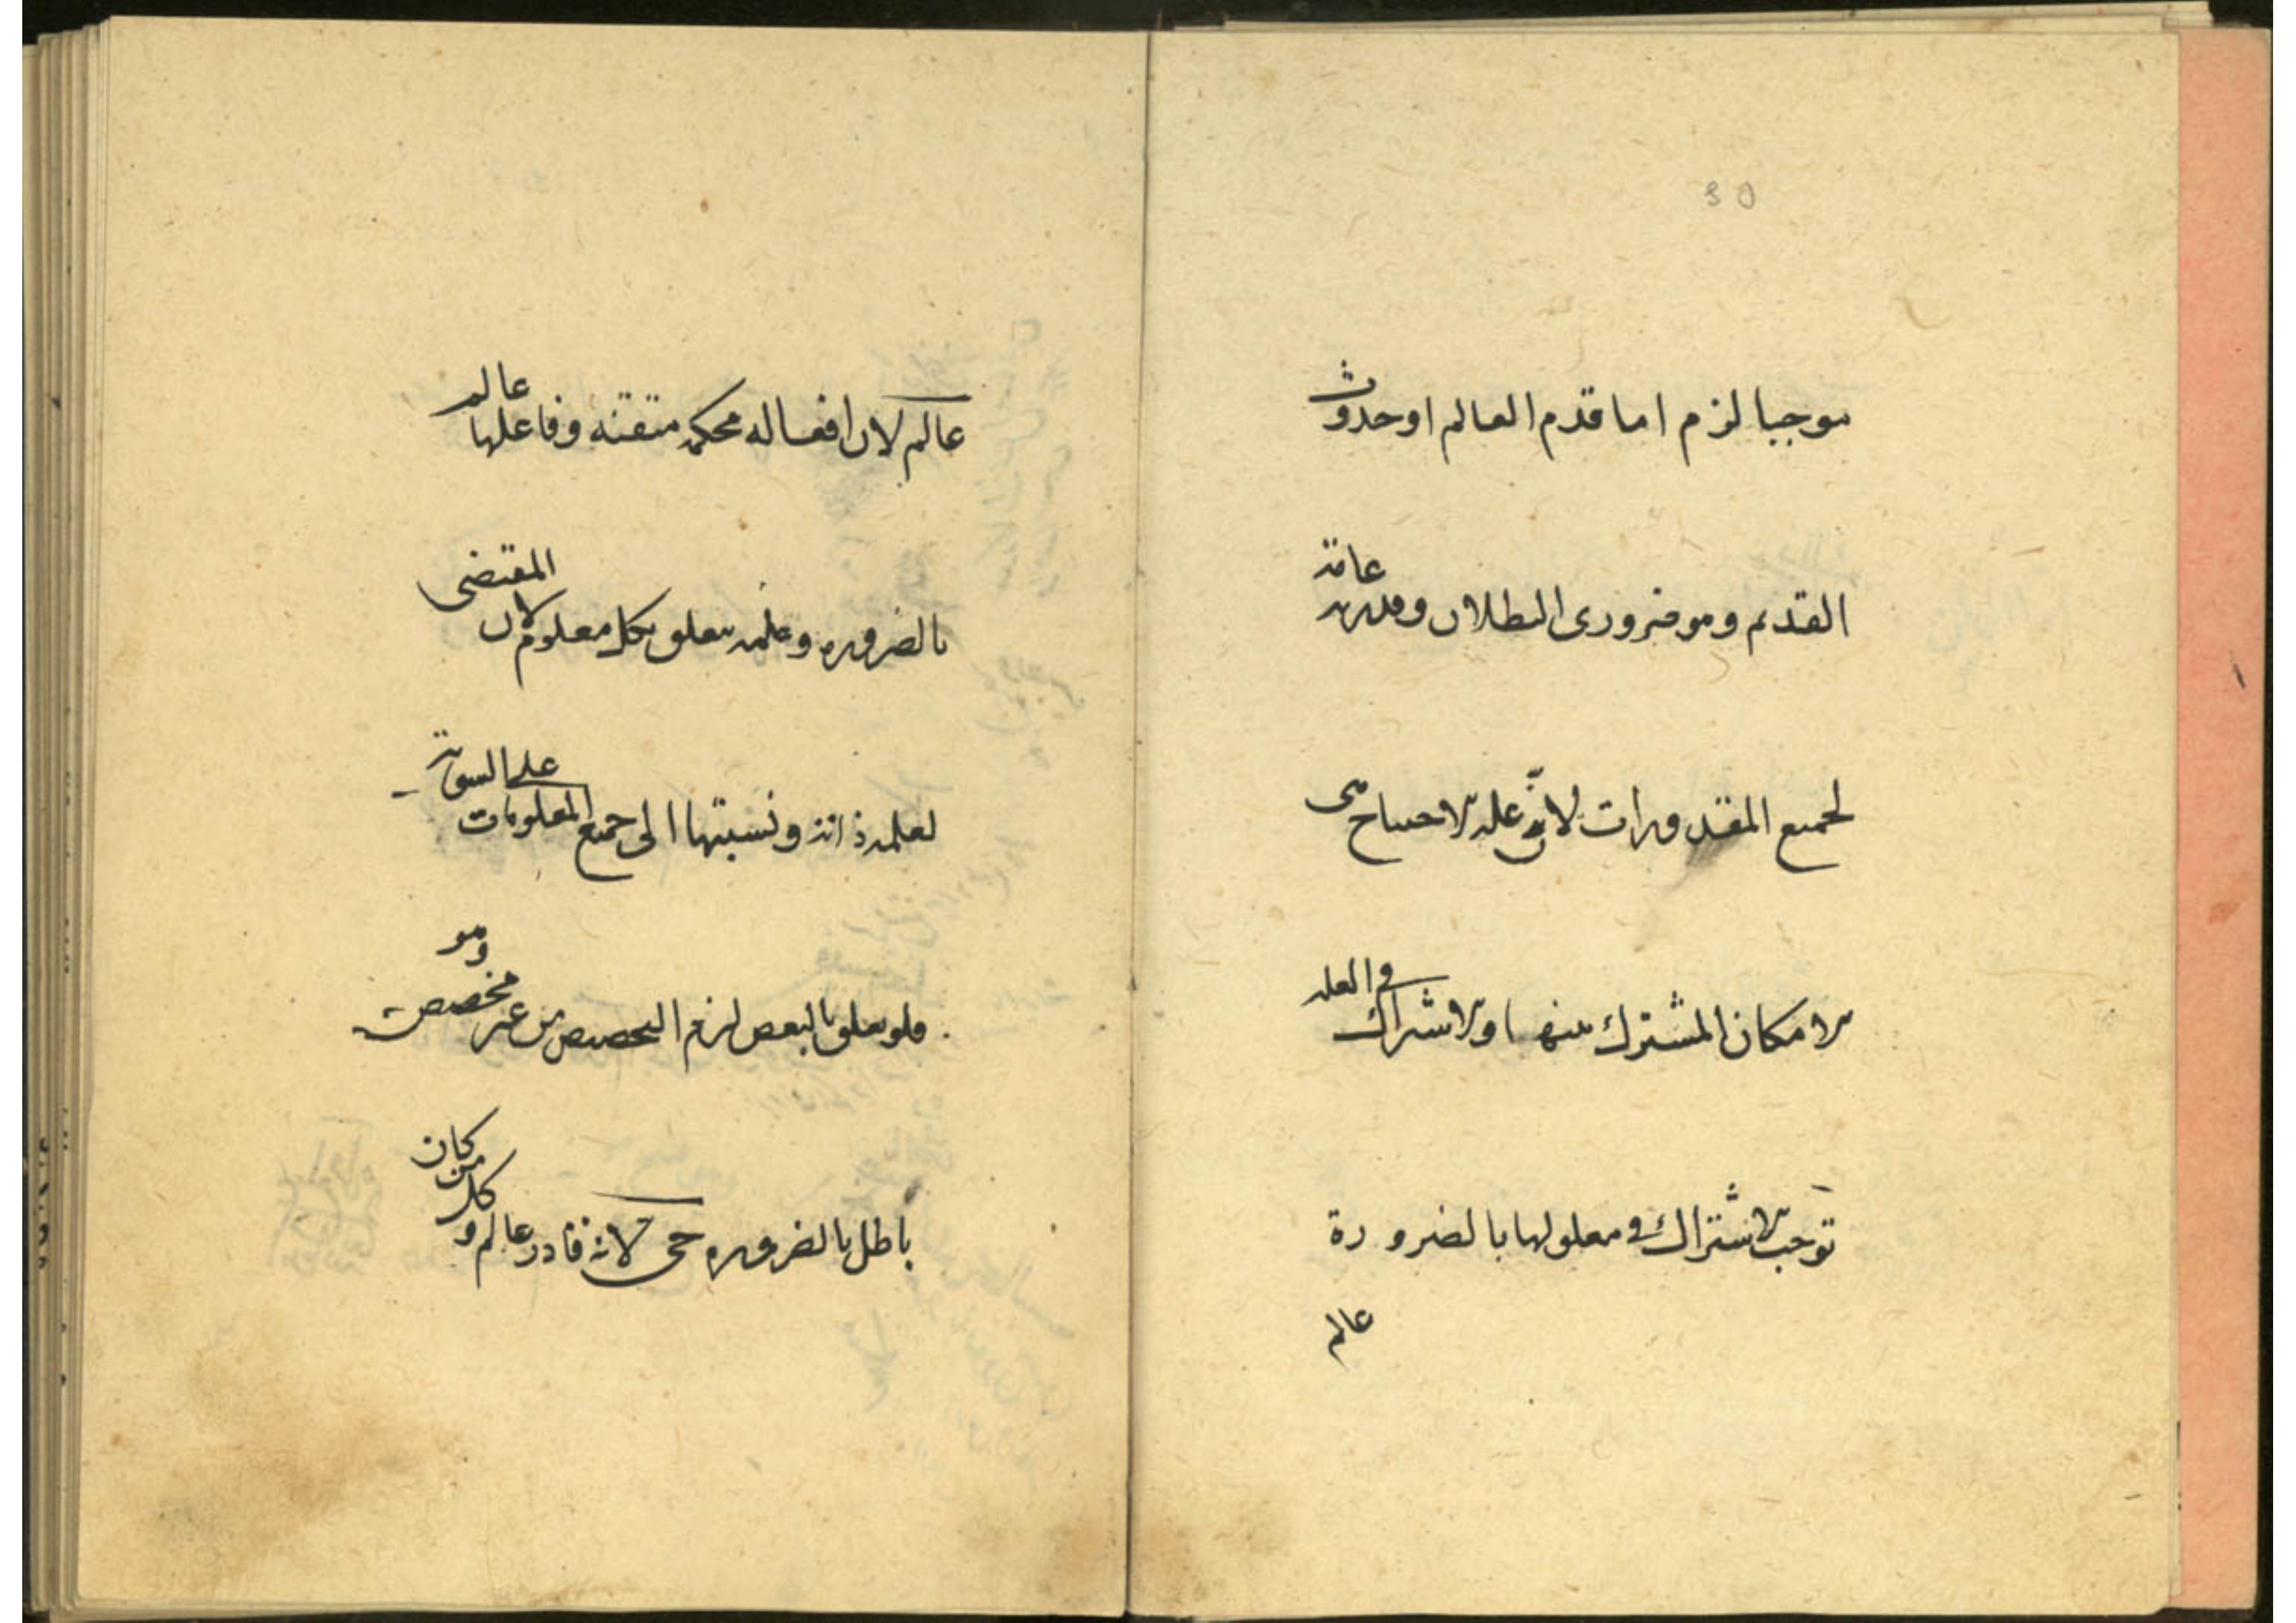 30
موجبا لزم اما قدم العالم او حدوث
القديم وهو ضرورى البطلان وقدرته عامة
لجميع المقدورات لان علة الاحتياج هى
الامكان المشترك بينها والاشتراك فى العلة
توجب الاشتراك فى معلولها بالضرورة
عالم
عالم لان افعاله محكمة متقنة وفاعلها عالم
بالضرورة وعلمه يتعلق بكل معلوم لان المقتضى
لعلمه ذاته ونسبتها الى جميع المعلومات على السوية
فلو تعلق بالبعض لزم التخصيص من غير مخصص وهو
باطل بالضرورة حى لانه قادر عالم وكل من كان